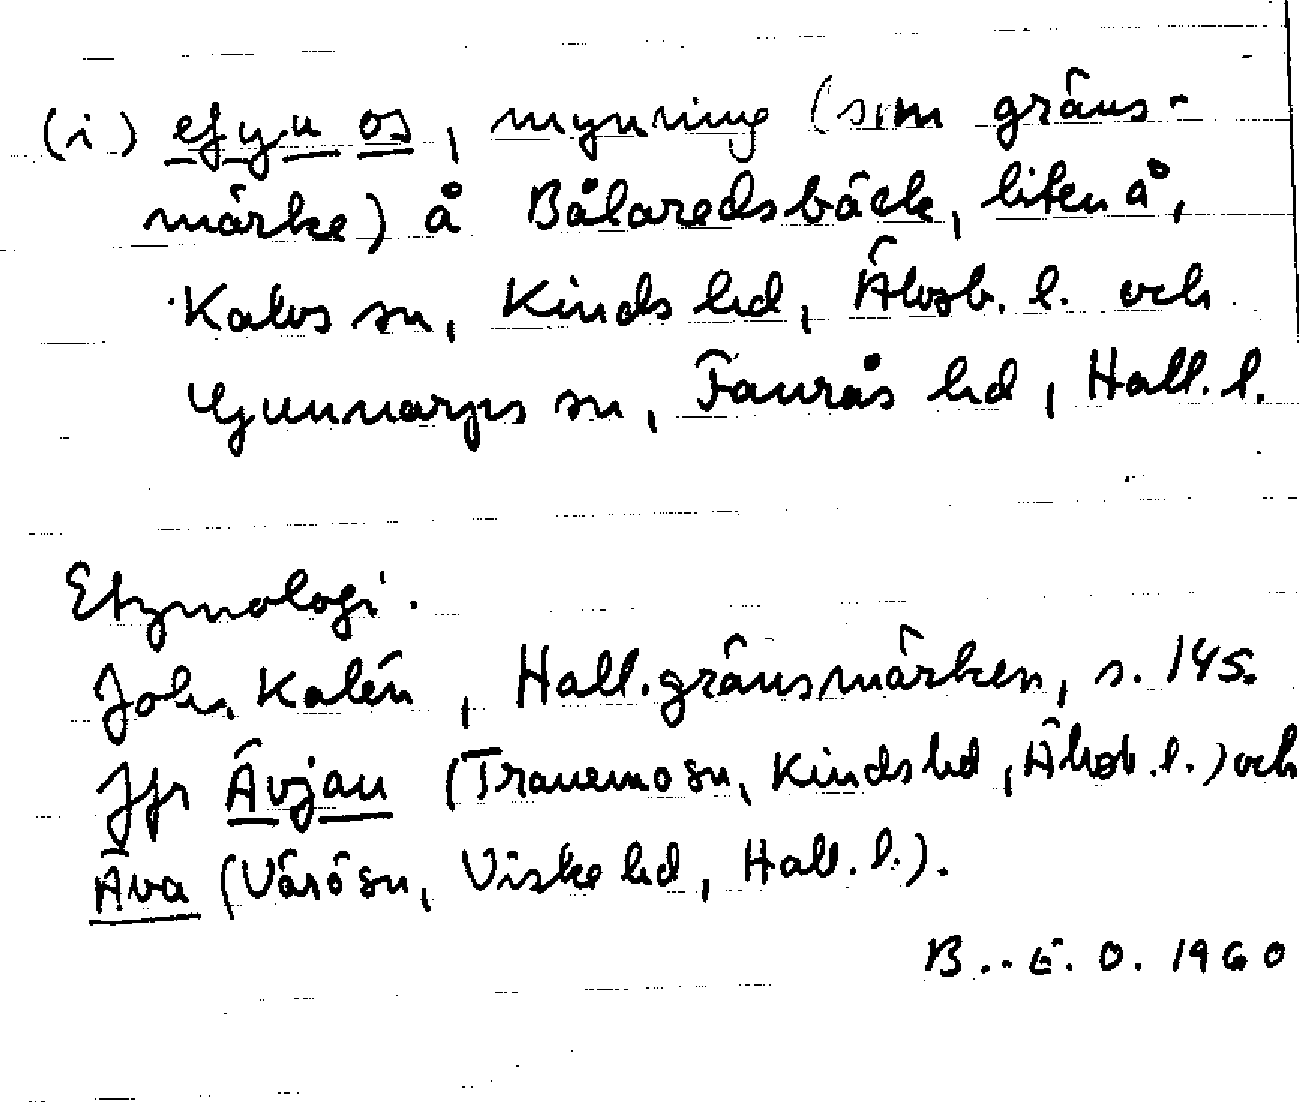 (i) efyu os, mynning (som gräns-
märke) å Bålaredsbäck, liten å,
Kalvs sn, Kinds hd, Älvsb. l. och
Gunnarps sn, Faurås hd, Hall. l.
Etymologi.
John Kalén, Hall. gränsmärken, s. 145.
Jfr Ävjan (Tranemo sn, Kinds hd, Älvsb. l.) och
Äva (Värö sn, Viske hd, Hall. l.).
B. E. O. 1960